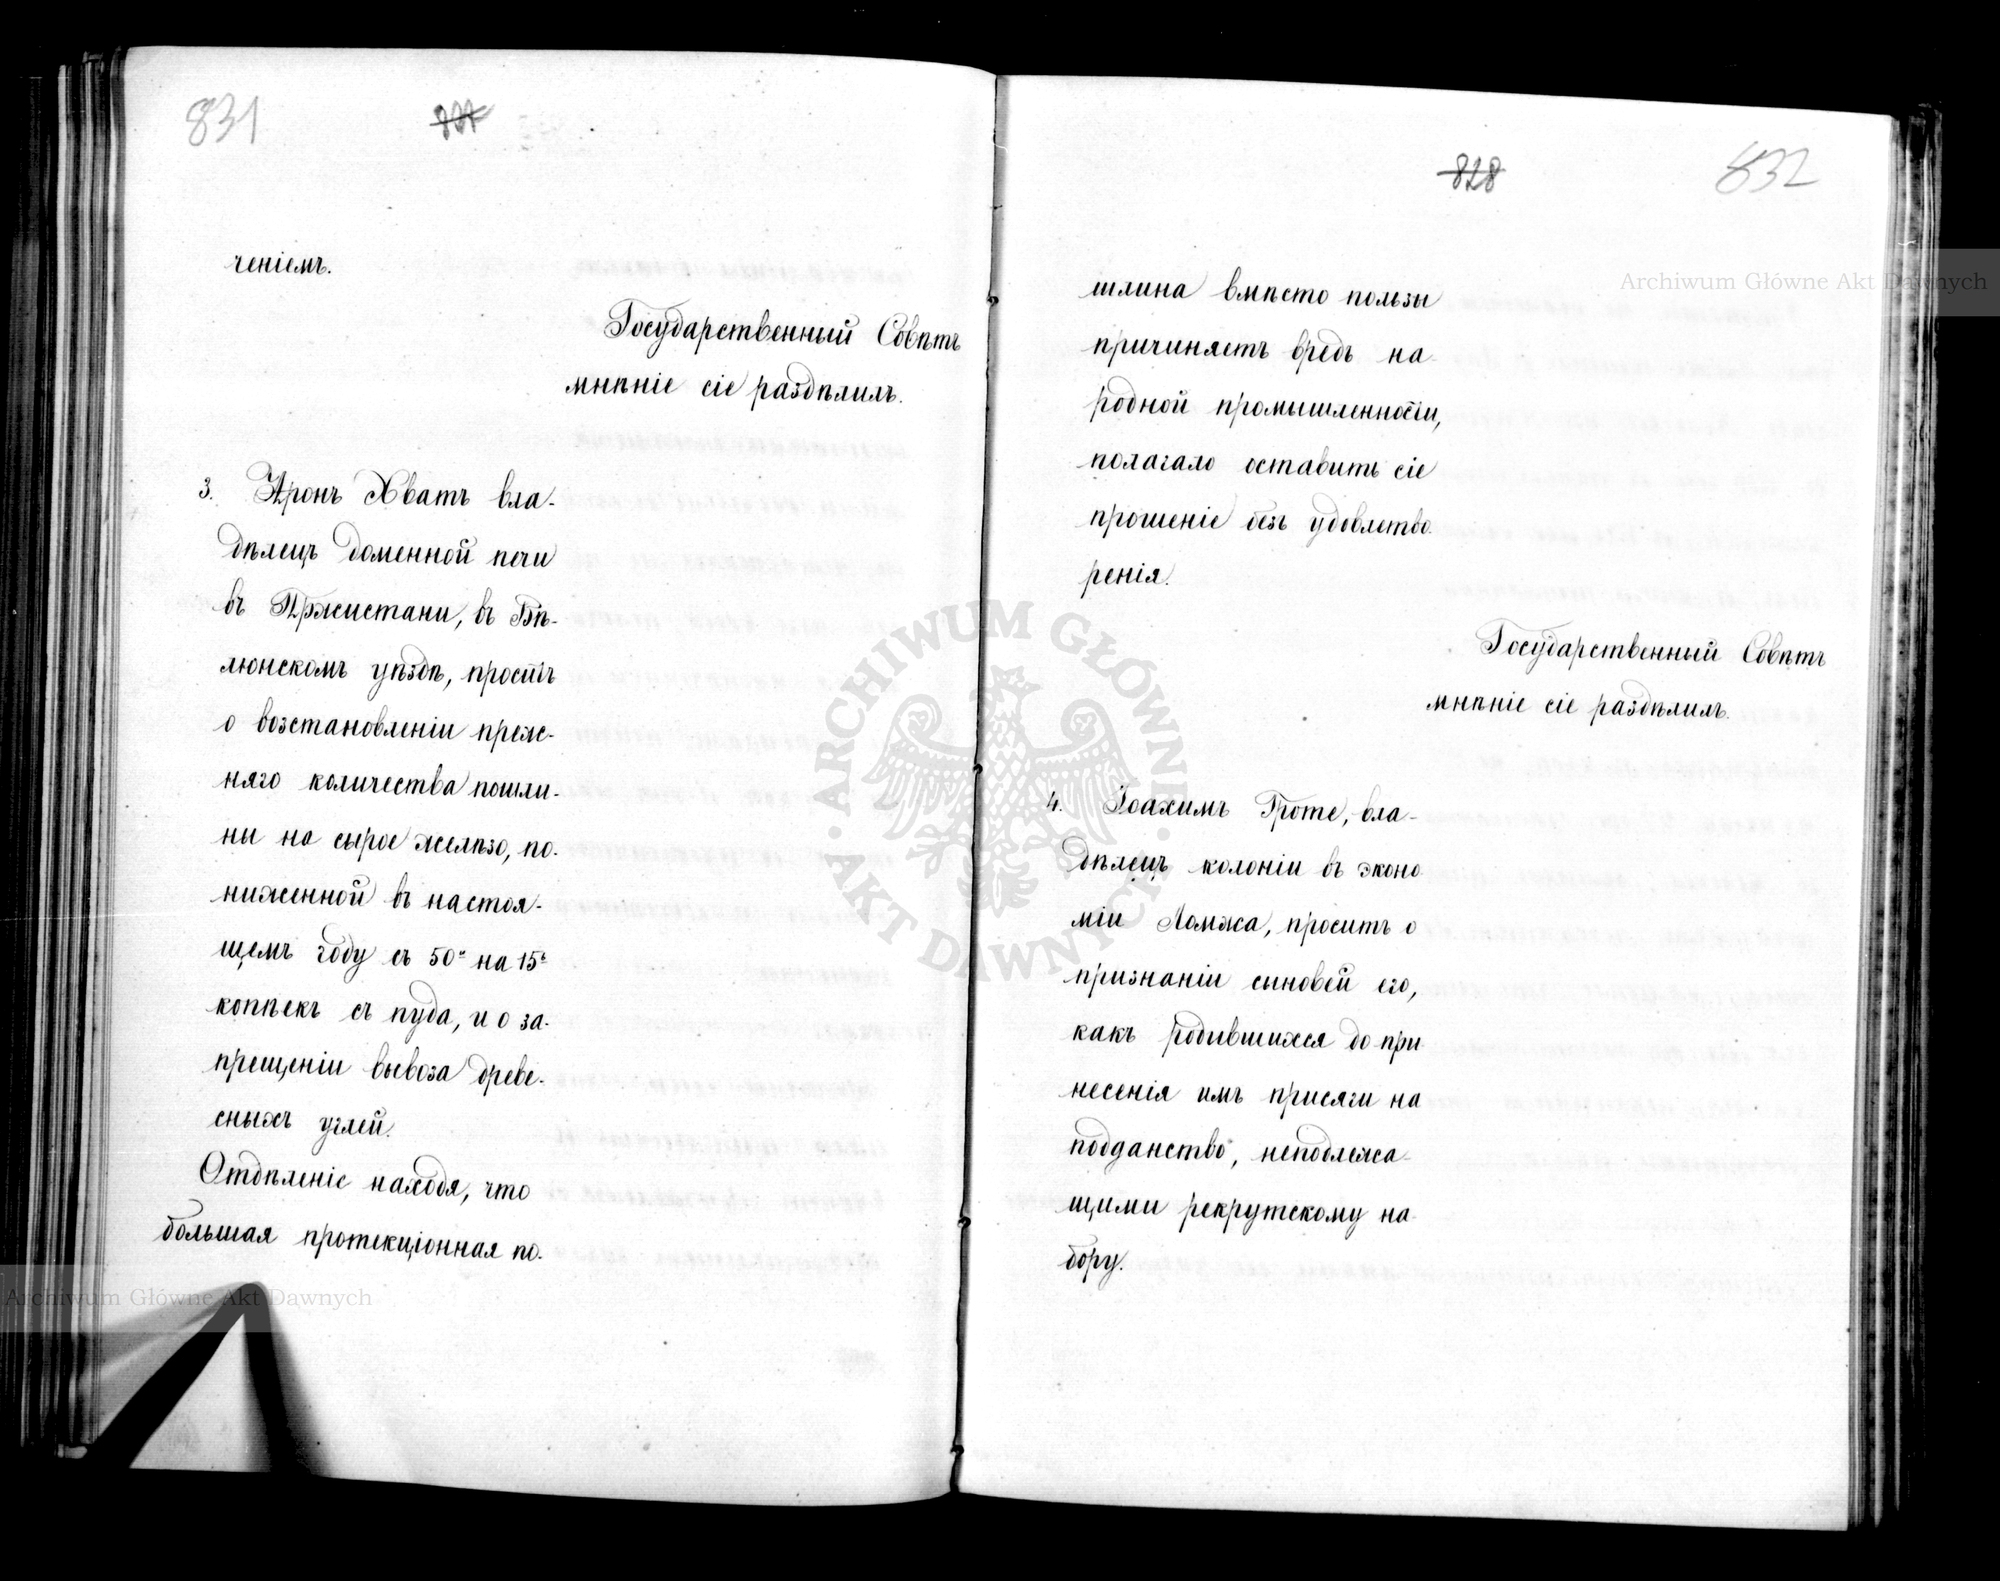 831
827
ченіемъ.
Государственный Совѣтъ
мнѣніе сіе раздѣлилъ.
3. Аронъ Хватъ вла-
дѣлецъ доменной печи
въ Пржистани, въ Вѣ-
люнскомъ уѣздѣ, проситъ
о возстановленіи преж-
няго количества пошли-
ны на сырое желѣзо, по-
ниженной въ настоя-
щемъ году съ 50и на 15ь
копѣекъ съ пуда, и о за-
прещеніи вывоза древе-
сныхъ углей.
Отдѣленіе находя, что
большая протекціонная по-
828
832
шлина вмѣсто пользы
причиняетъ вредъ на-
родной промышленности,
полагало оставить сіе
прошеніе безъ удовлетво
ренія.
Государственный Совѣтъ
мнѣніе сіе раздѣлилъ.
4. Іоахимъ Гроте, вла-
дѣлецъ колоніи въ эконо
міи Ломжа, проситъ о
признаніи сыновей его,
какъ родившихся до при
несенія имъ присяги на
подданство, неподлежа-
щими рекрутскому на-
бору.
Archiwum Główne Akt Dawnych
ARCHIWUM GŁÓWNE AKT DAWNYCH
Archiwum Główne Akt Dawnych